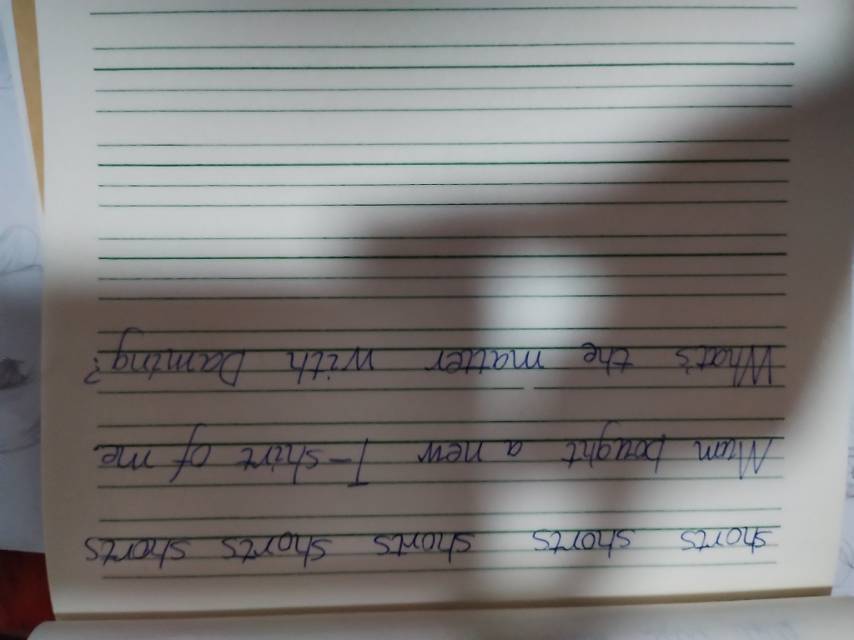 shorts shorts shorts shorts shorts
Mum bought a new T-shirt of me
What's the matter with Daming?